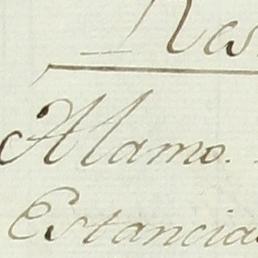 Alamo.
Estancia